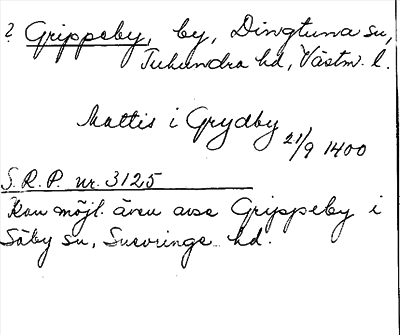 ? Grippeby, by, Dingtuna sn,
Tuhundra hd, Västm. l.
Mattis i Grydby
21/9 1400
S.R.P. nr. 3125
Kan möjl. även avse Grippeby i
Säby sn, Snevringe hd.